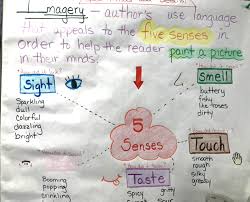 Imagery - author's use language
that appeals to the five senses in
order to help the reader paint a picture
in their minds.
Sight
Sparkling
dull
colorful
dazzling
bright
Smell
buttery
fishy
like roses
dirty
5
Senses
Touch
smooth
rough
silky
greasy
Booming
popping
Taste
spicy
gritty
sour